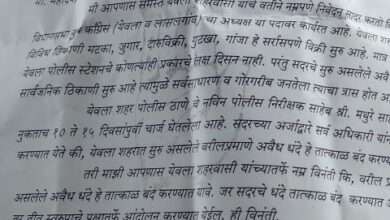 मी आपणास समस्त येवला शहरवासी यांच्या वतीने नम्रपणे निवेदन सादर करतो
काँग्रेस (येवला व लासलगाव) चा अध्यक्ष या पदावर कार्यरत आहे. येवला
विविध ठिकाणी मटका, जुगार, दारुविक्री, गुटखा, गांजा हे सर्रासपणे विक्री सुरु आहे. मात्र
येवला पोलीस स्टेशनचे कोणत्याही प्रकारचे लक्ष दिसत नाही. परंतु सदरचे सुरु असलेले अवैध
सार्वजनिक ठिकाणी सुरु आहे त्यामुळे सर्वसाधारण व गोरगरीब जनतेला त्याचा त्रास होत आहे
येवला शहर पोलीस ठाणे चे नविन पोलीस निरीक्षक साहेब श्री. मथुरे साहेब
नुकताच १० ते १५ दिवसांपुर्वी चार्ज घेतलेला आहे. सदरच्या अर्जाद्वारे सर्व अधिकारी यांना
करण्यात येते की, येवला शहरात सुरु असलेले वरीलप्रमाणे अवैध धंदे हे तात्काळ बंद कर
तरी माझी आपणास येवला शहरवासी यांच्यातर्फे नम्र विनंती कि, वरील प्र
असलेले अवैध धंदे हे तात्काळ बंद करण्यात यावे. जर सदरचे धंदे हे तात्काळ बंद कर
तीव्र स्वरुपाचे पक्षातर्फे आंदोलन करण्यात येईल. ही विनंती.